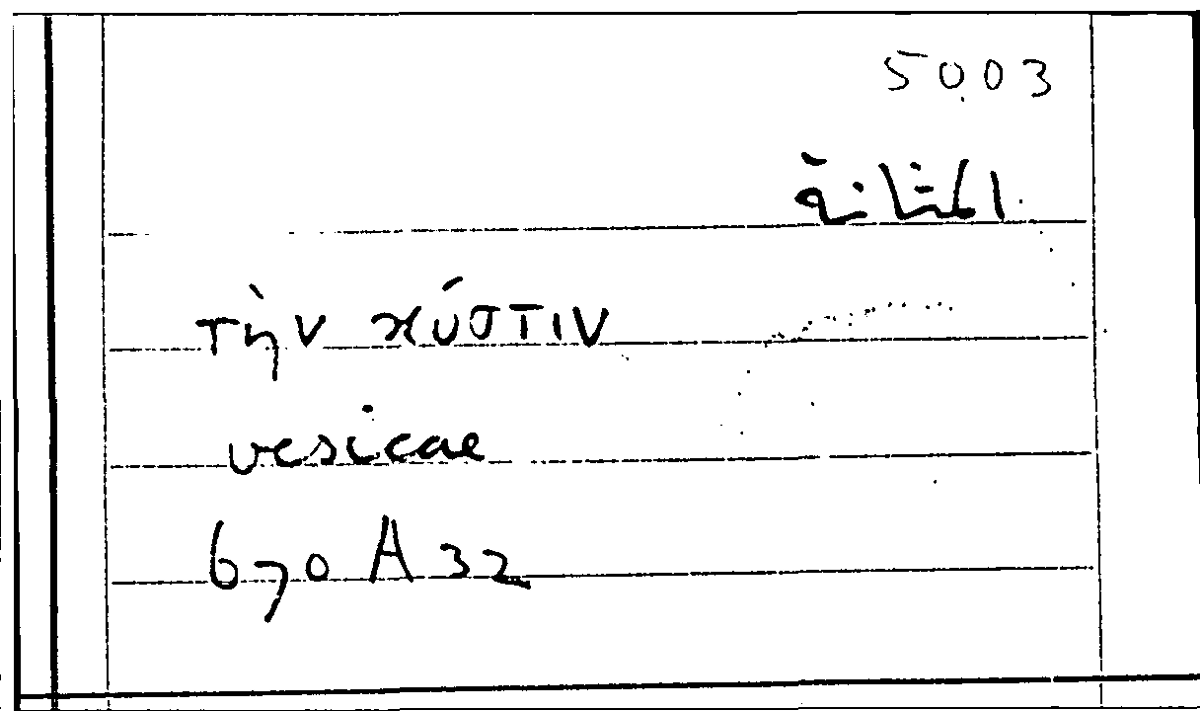 5003
المثانة
τὴν κύστιν
vesicae
670 A 32